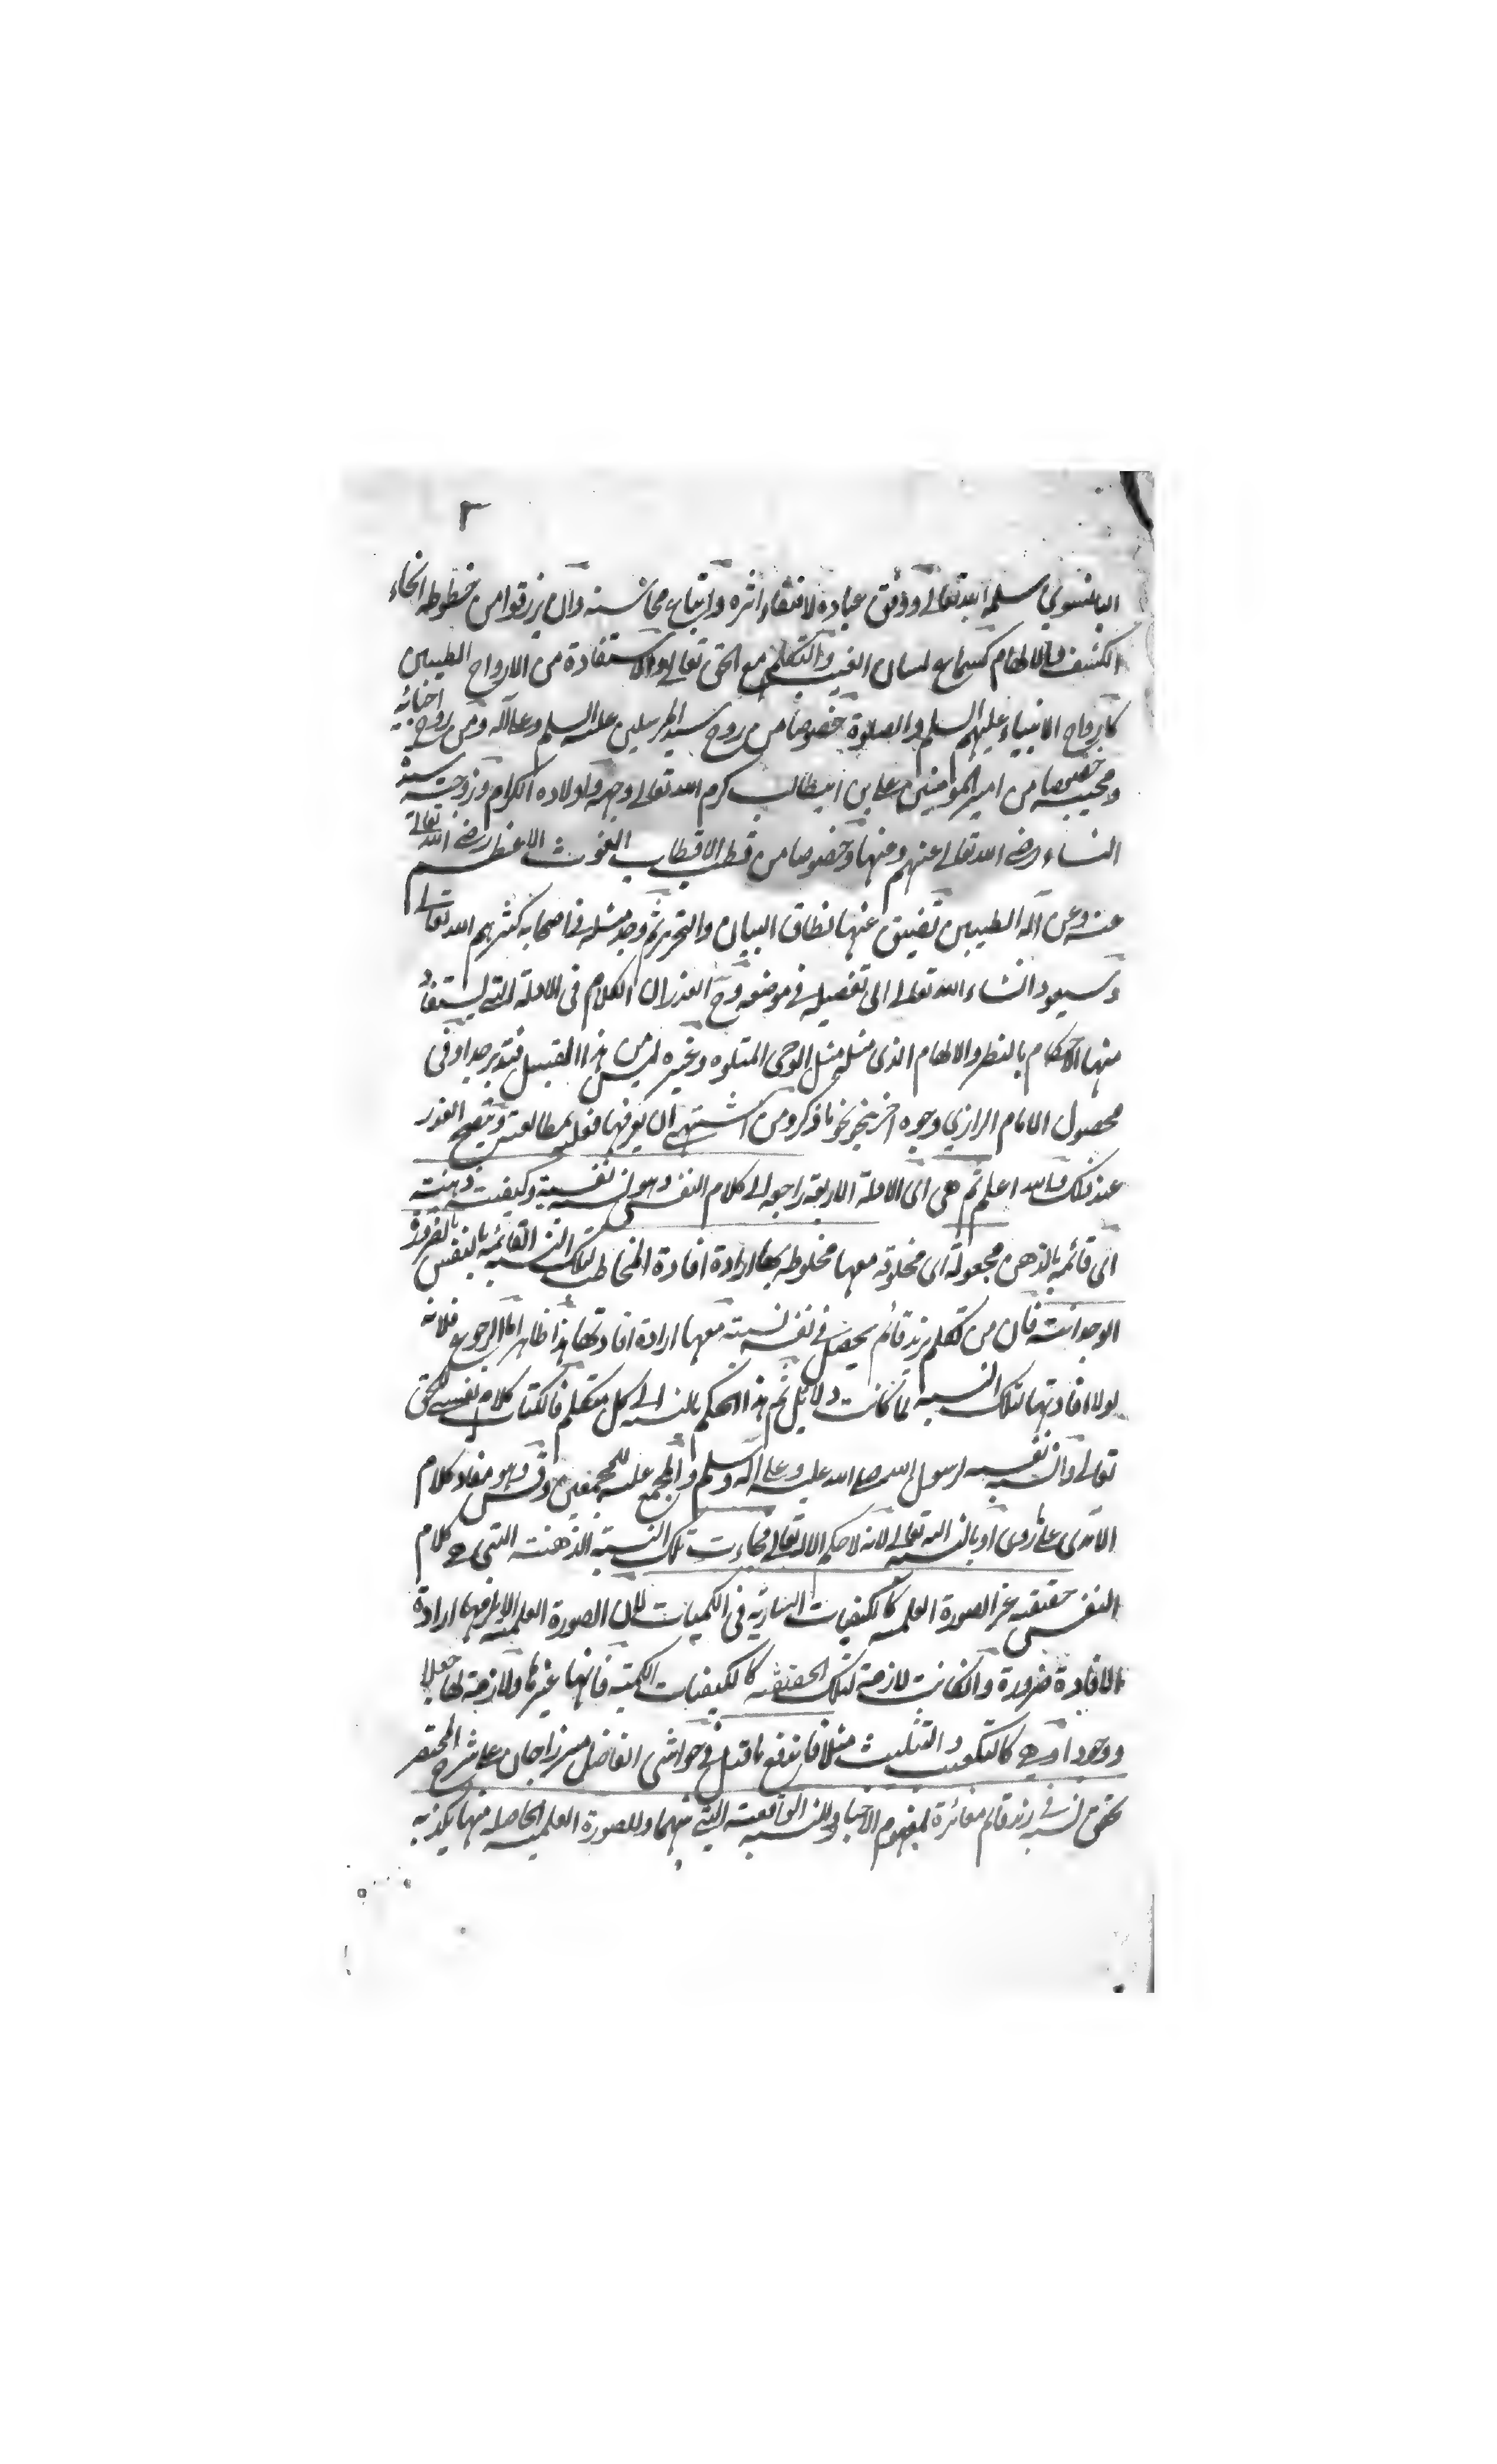 ٣
البانسوي سلمه الله تعالى ووفق عباده لاقتفاء اثره واتباع محاسنه وان يرزقوا من خطوطه انحاء
الكشف والالهام كسماع لسان الغيب والتكلم مع الحق تعالى والاستفادة من الارواح الطيبين
كارواح الانبياء عليهم السلم والصلوة خصوصا من روح سيد المرسلين عليه السلم وعلى آله ومن روح احبائه
ومحبيه خصوصا من امير المؤمنين علي بن ابيطالب كرم الله تعالى وجهه واولاده الكرام وزوجته سيدة
النساء رضي الله تعالى عنهم وعنها وخصوصا من قطب الاقطاب الغوث الاعظم رضي الله تعالى
عنه وعن آله الطيبين تضيق عنها نطاق البيان والتحرير ثم وجد مثله في اصحابه كثرهم الله تعالى
وسيعود انشاء الله تعالى الى تفصيله في موضعه وح العذر ان الكلام في الادلة التي يستفاد
منها الاحكام بالنظر والالهام الذي مثله مثل الوحي المتلو وغيره ليس من هذا القبيل فتدبر جدا وفى
محصول الامام الرازي وجوه اخر بنحو نحو ما ذكر ومن اشتهى ان يعرفها فعليه مطالعته ويتضح العذر
عند ذلك والله اعلم ثم هي اى الادلة الاربعة راجعة الى كلام النفس وهو نسبة نفسية وكيفية ذهنية
اى قائمة بالذهن مجعولة اى مخلوقة معها مخلوطة بها ارادة افادة المخاطب لتلك النسبة القائمة بالنفس بالضرورة
الوجدانية فان من تكلم بزيد قائم يحصل في نفسه نسبة معها ارادة افادتها هذا ظاهر اما الرجوع فلانه
لولا افادتها لتلك النسبة لما كانت دلائل ثم هذا الحكم بالنسبة الى كل متكلم فالكتاب كلام نفسي للحق
تعالى والسنة نفسية لرسول الله صلى الله عليه وعلى اله وسلم والمجمع عليه للمجمعين وقس وهو مفاد كلام
الآمدى على ما روى او بالنسبة اليه تعالى لانه لا حكم الا لله تعالى فجاءت تلك النسبة الذهنية التي هي كلام
النفس حقيقة غير الصورة العلمية كالكيفيات السارية في الكميات لان الصورة العلمية لا يلزمها ارادة
الافادة ضرورة وانكانت لازمة لتلك الحقيقة كالكيفيات الكمية فانها غيرها ولازمة لها جعلا
ووجودا وهي كالتكعيب والتثليث مثلا فاندفع ما قيل في حواشي الفاضل ميرزا جان على شرح المختصر
تحقق نسبة في زيد قائم مغائرة لمفهوم الاخبار وللنسبة الواقعة التي بينهما وللصورة العلمية الحاصلة منها يكذبه